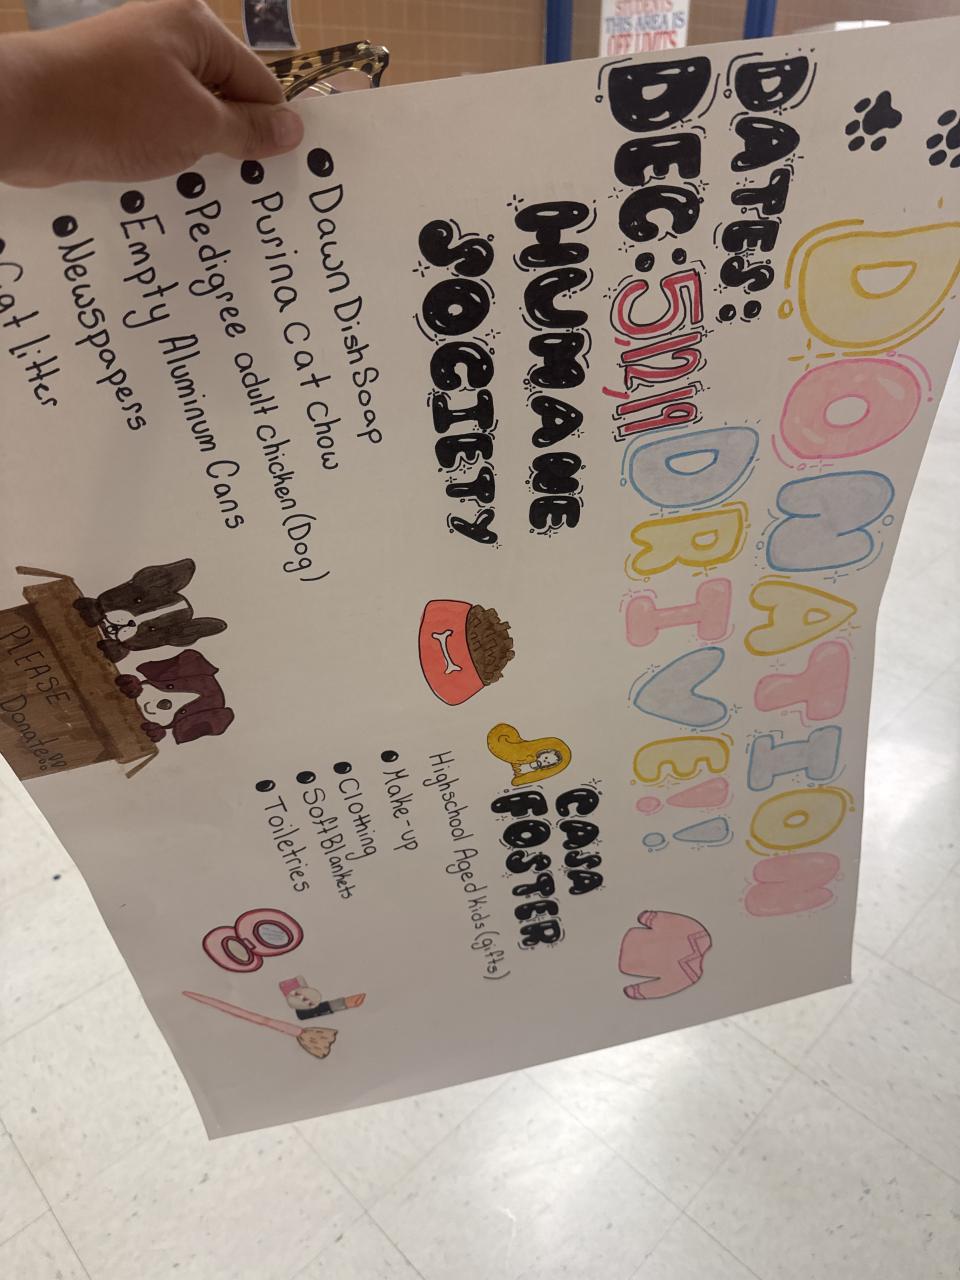 STUDENTS
THIS AREA IS
OFF LIMITS
DONATION
DRIVE!!
DATES:
DEC: 5,12,19
HUMANE
SOCIETY
• Dawn Dish Soap
• Purina Cat Chow
• Pedigree adult chicken (Dog)
• Empty Aluminum Cans
• Newspapers
• Cat litter
PLEASE
Donate!!!
CASA
FOSTER
Highschool Aged Kids (gifts)
• Make-up
• Clothing
• Soft Blankets
• Toiletries